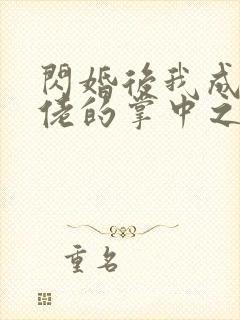 閃婚後我成
佬的掌中之
重名